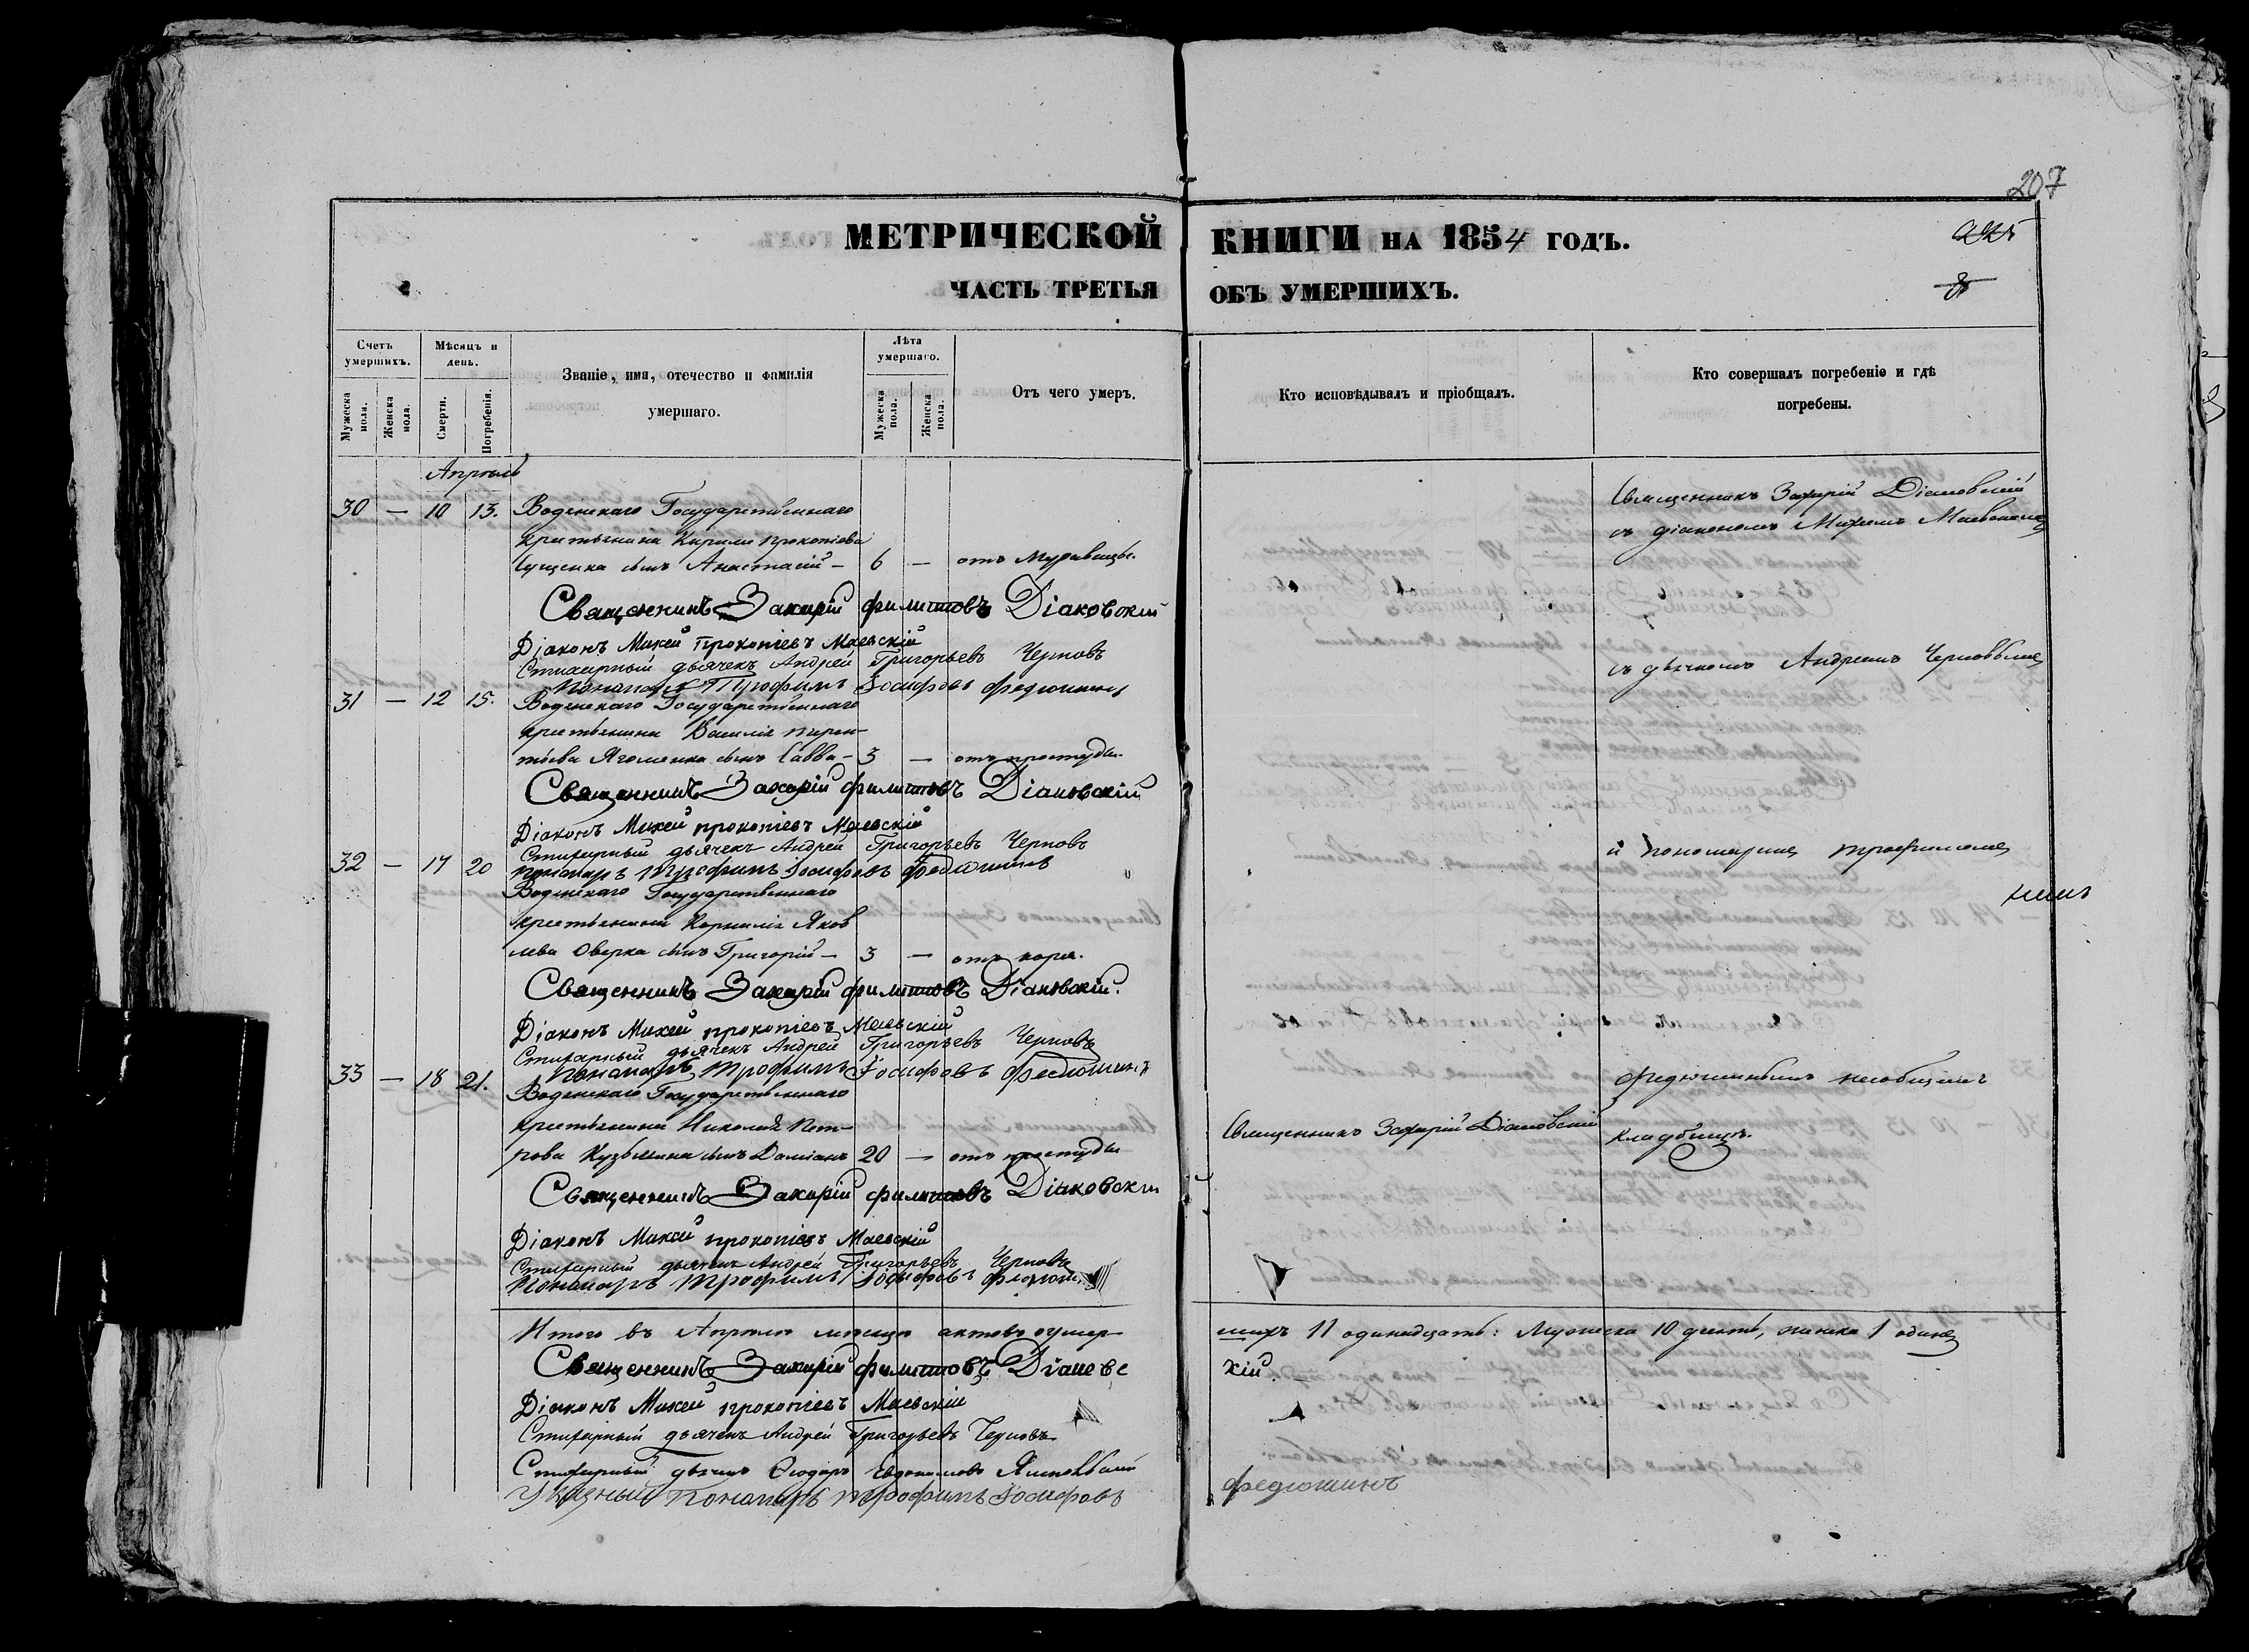 207
МЕТРИЧЕСКОЙ КНИГИ НА 1854 ГОДЪ.
ЧАСТЬ ТРЕТЬЯ ОБЪ УМЕРШИХЪ.
Счетъ умершихъ.
Мужеска пола.
Женска пола.
Мѣсяцъ и день.
Смерти.
Погребенія.
Званіе, имя, отечество и фамилія умершаго.
Лѣта умершаго.
Мужеска пола.
Женска пола.
Отъ чего умеръ.
Кто исповѣдывалъ и пріобщалъ.
Кто совершалъ погребеніе и гдѣ погребены.
Апрѣль
30 — 10 13. Государственнаго
крестьянина Кирила Прокопіева
сынъ Анастасій — 6 —
Священникъ Захарій Діаковскій
съ діакономъ Михеемъ Маевскимъ
Священникъ Захарій Филиповъ Діаковскій
Діаконъ Михей Прокопіевъ Маевскій
Стихарный дьячекъ Андрей Григорьевъ Черновъ
Пономарь Трофимъ Іосифовъ Федюшинъ
съ дьячкомъ Андреемъ Черновымъ
31 — 12 15. Государственнаго
крестьянина Василія
сынъ Савва — 3 — отъ простуды.
Священникъ Захарій Филиповъ Діаковскій
Діаконъ Михей Прокопіевъ Маевскій
Стихарный дьячекъ Андрей Григорьевъ Черновъ
Пономарь Трофимъ Іосифовъ Федюшинъ
и пономаремъ Трофимомъ
32 — 17 20 Государственнаго
крестьянина Корнилія Яков
лева сынъ Григорій — 3 — отъ кори.
Священникъ Захарій Филиповъ Діаковскій.
Діаконъ Михей Прокопіевъ Маевскій
Стихарный дьячекъ Андрей Григорьевъ Черновъ
Пономарь Трофимъ Іосифовъ Федюшинъ
33 — 18 21. Государственнаго
крестьянина Николая Пет-
рова Кузьмина сынъ Даміанъ 20 — отъ простуды
Священникъ Захарій Діаковскій
Федюшинымъ на общемъ
кладбищѣ.
Священникъ Захарій Филиповъ Діаковскій
Діаконъ Михей Прокопіевъ Маевскій
Стихарный дьячекъ Андрей Григорьевъ Черновъ
Пономарь Трофимъ Іосифовъ
Итого въ Апрѣлѣ мѣсяцѣ актовъ о умер-
шихъ 11 одинадцать: Мужеска 10 десять, женска 1 одинъ
Священникъ Захарій Филиповъ Діаковс
кій.
Діаконъ Михей Прокопіевъ Маевскій
Стихарный дьячекъ Андрей Григорьевъ Черновъ
Стихарный дьячекъ Ѳеодоръ
Указный Пономарь Трофимъ Іосифовъ
Федюшинъ